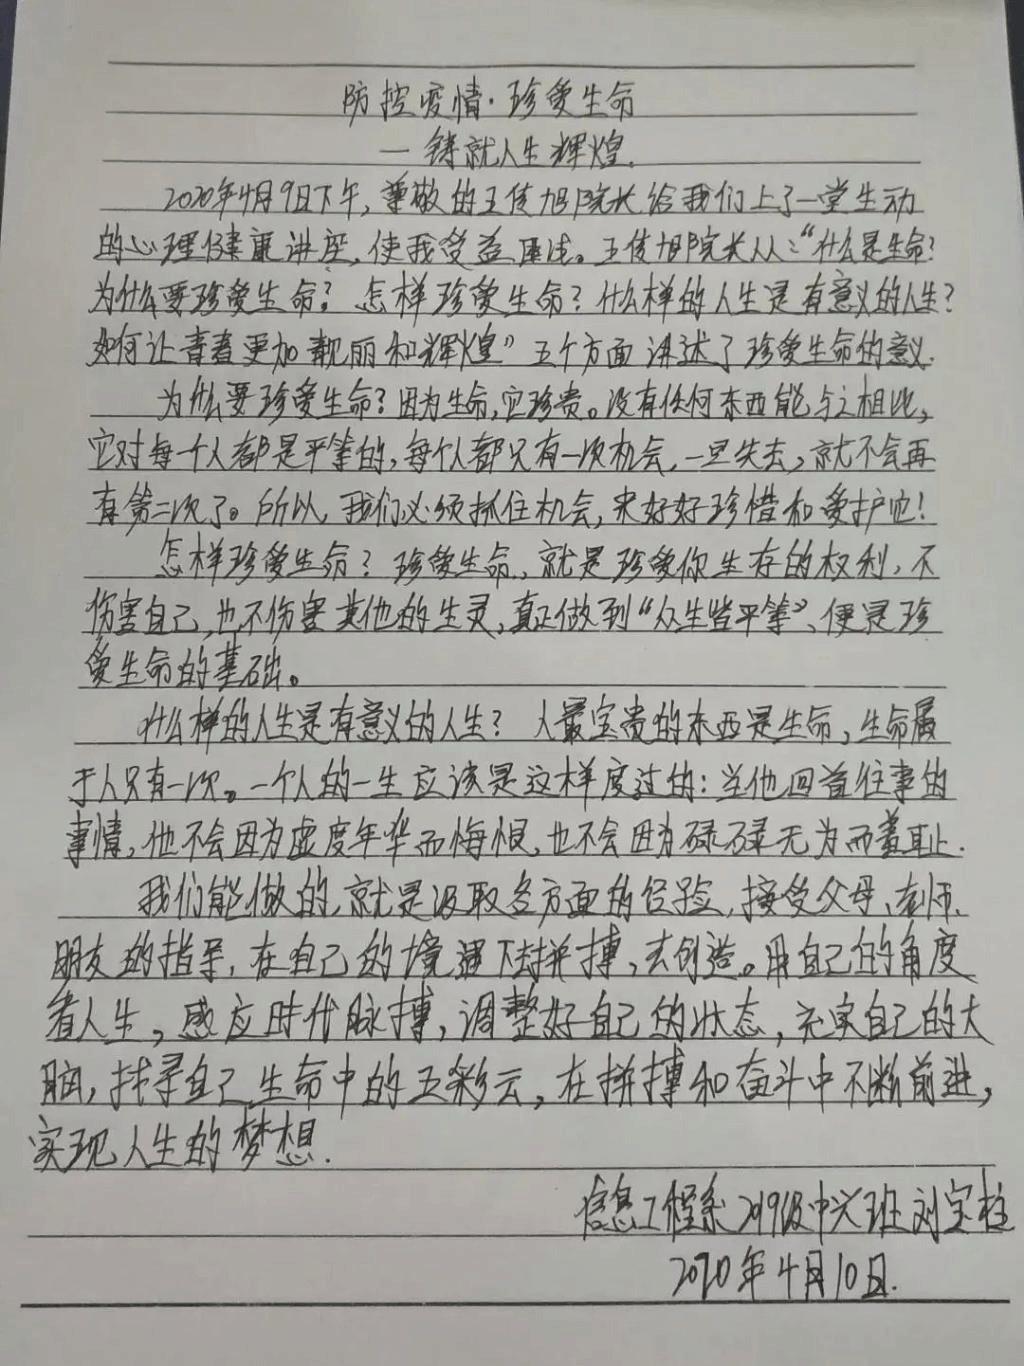 防控疫情·珍爱生命
一铸就人生辉煌.
2020年4月9日下午,尊敬的王俊旭院长给我们上了一堂生动
的心理健康讲座,使我受益匪浅。王俊旭院长从:“什么是生命?
为什么要珍爱生命?怎样珍爱生命?什么样的人生是有意义的人生?
如何让青春更加靓丽和辉煌”五个方面讲述了珍爱生命的意义.
为什么要珍爱生命?因为生命,它珍贵。没有任何东西能与之相比,
它对每一个人都是平等的,每个人都只有一次机会,一旦失去,就不会再
有第二次了。所以,我们必须抓住机会,来好好珍惜和爱护它!
怎样珍爱生命?珍爱生命,就是珍爱你生存的权利,不
伤害自己,也不伤害其他的生灵,真正做到“众生皆平等”、便是珍
爱生命的基础。
什么样的人生是有意义的人生?人最宝贵的东西是生命,生命属
于人只有一次。一个人的一生应该是这样度过的:当他回首往事的
事情,他不会因为虚度年华而悔恨,也不会因为碌碌无为而羞耻.
我们能做的,就是汲取各方面的经验,接受父母、老师、
朋友的指导,在自己的境遇下去拼搏,去创造。用自己的角度
看人生,感应时代脉搏,调整好自己的状态,充实自己的大
脑,找寻自己生命中的五彩云,在拼搏和奋斗中不断前进,
实现人生的梦想.
信息工程系2019级中兴班刘宝柱
2020年4月10日.